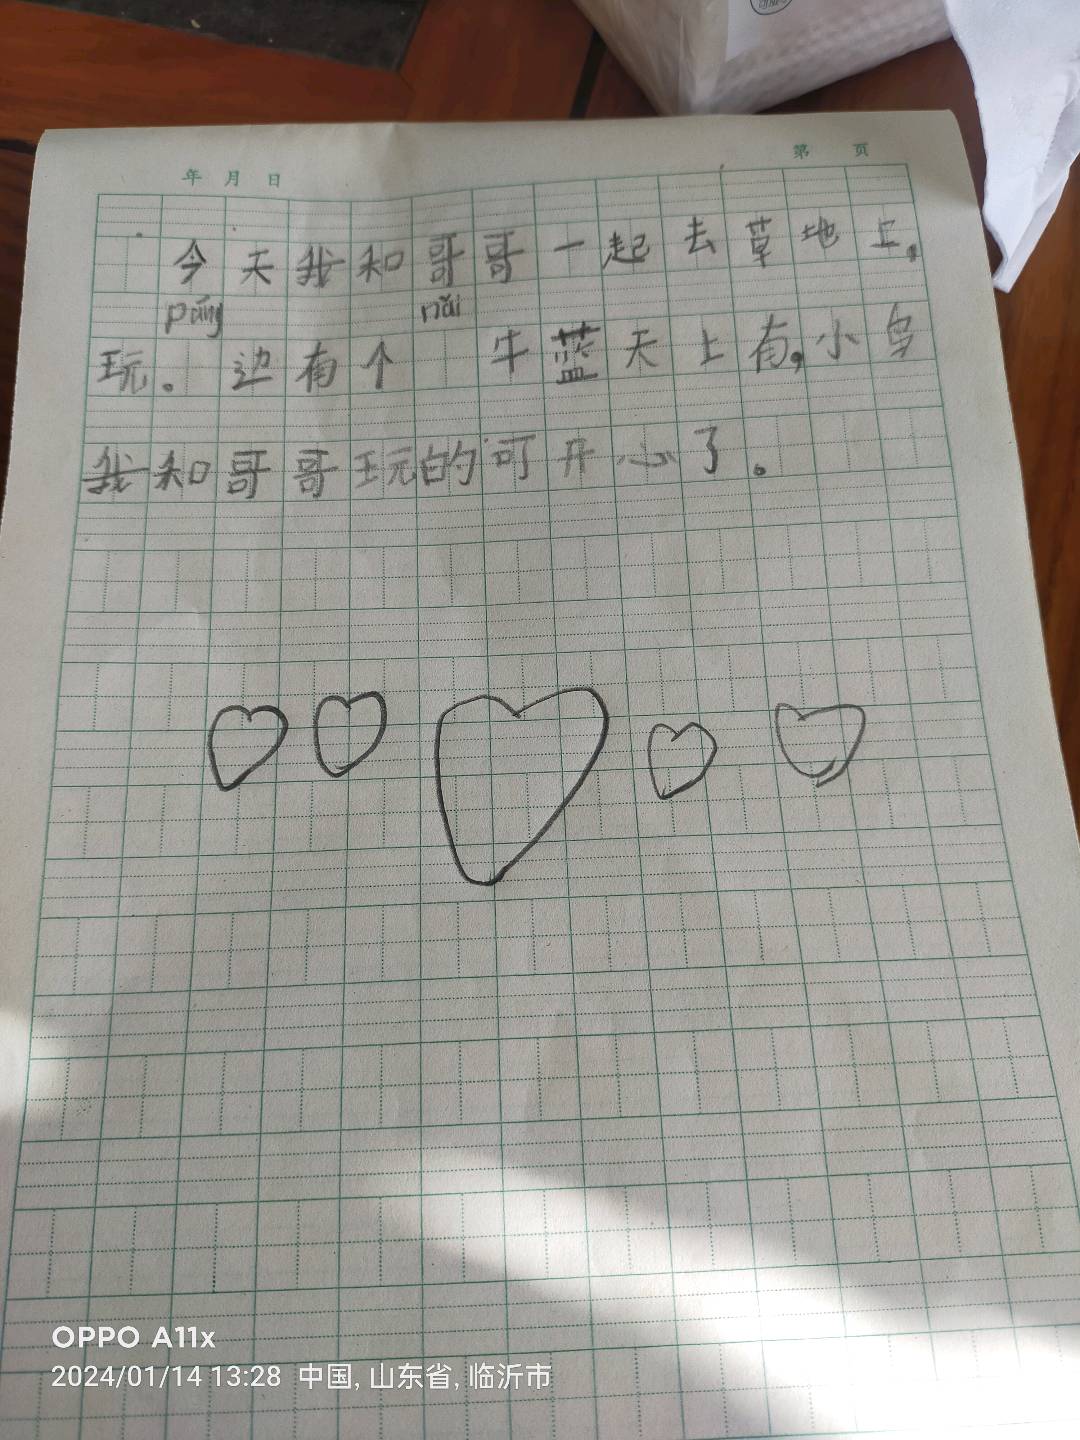 年 月 日
第 页
今天我和哥哥一起去草地上,
páng nǎi
玩。边有个 牛蓝天上有,小鸟
我和哥哥玩的可开心了。
OPPO A11x
2024/01/14 13:28 中国, 山东省, 临沂市